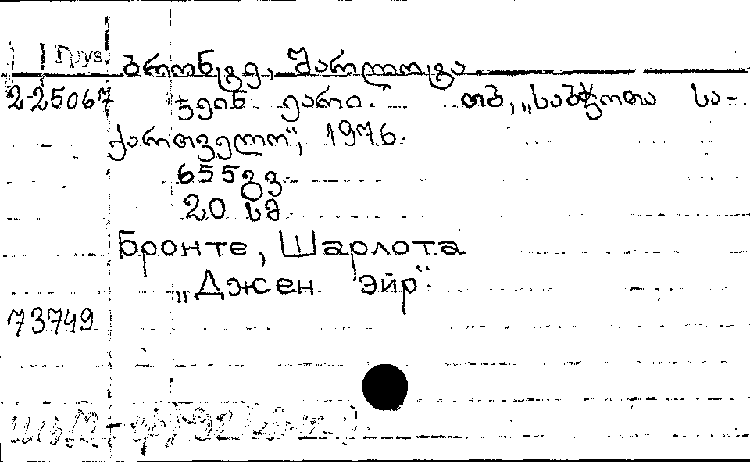 Груз.
ბრონტე, შარლოტა
2-25067 ჯეინ ეირი. თბ, „საბჭოთა სა-
ქართველო“, 1976.
655გვ.
20 სმ
Бронте, Шарлота
„Джен Эйр“.
73749